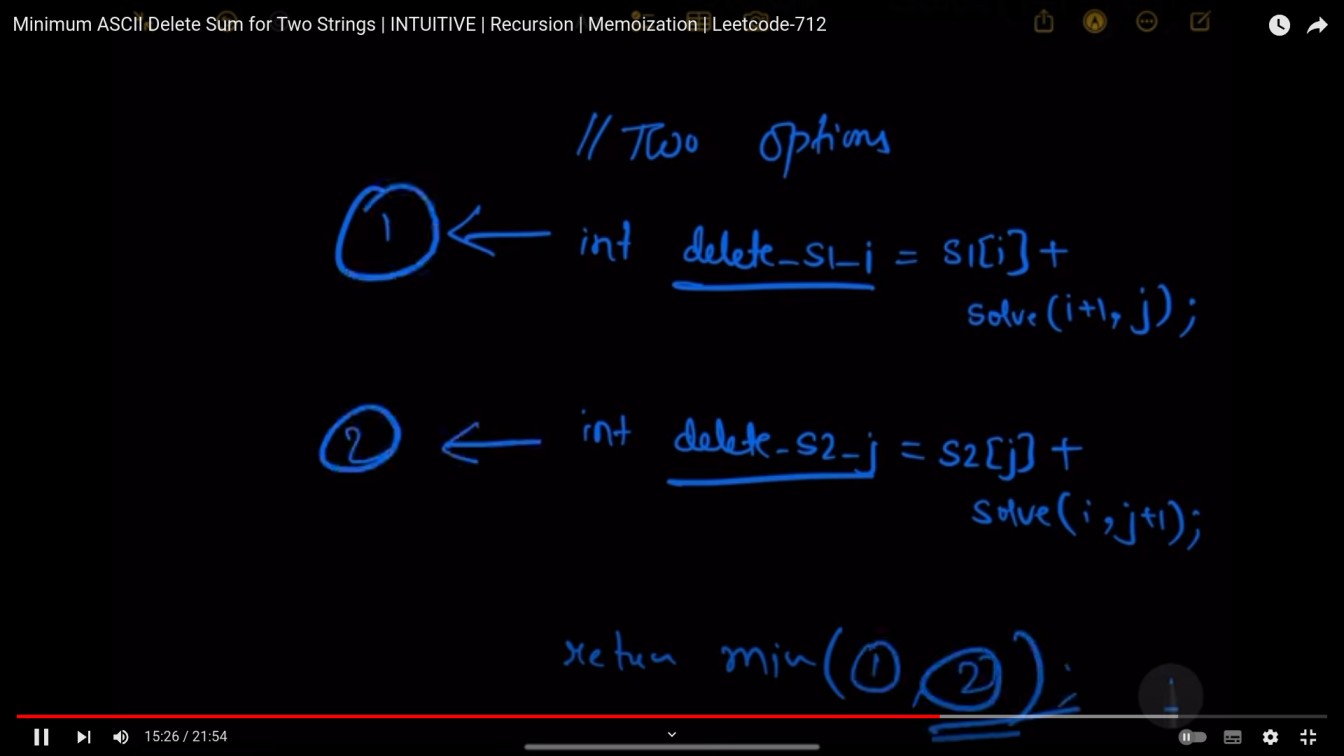 Minimum ASCII Delete Sum for Two Strings | INTUITIVE | Recursion | Memoization | Leetcode-712
// Two options
1 ← int delete_s1_i = s1[i] +
solve(i+1, j);
2 ← int delete_s2_j = s2[j] +
solve(i, j+1);
return min(1, 2);
15:26 / 21:54